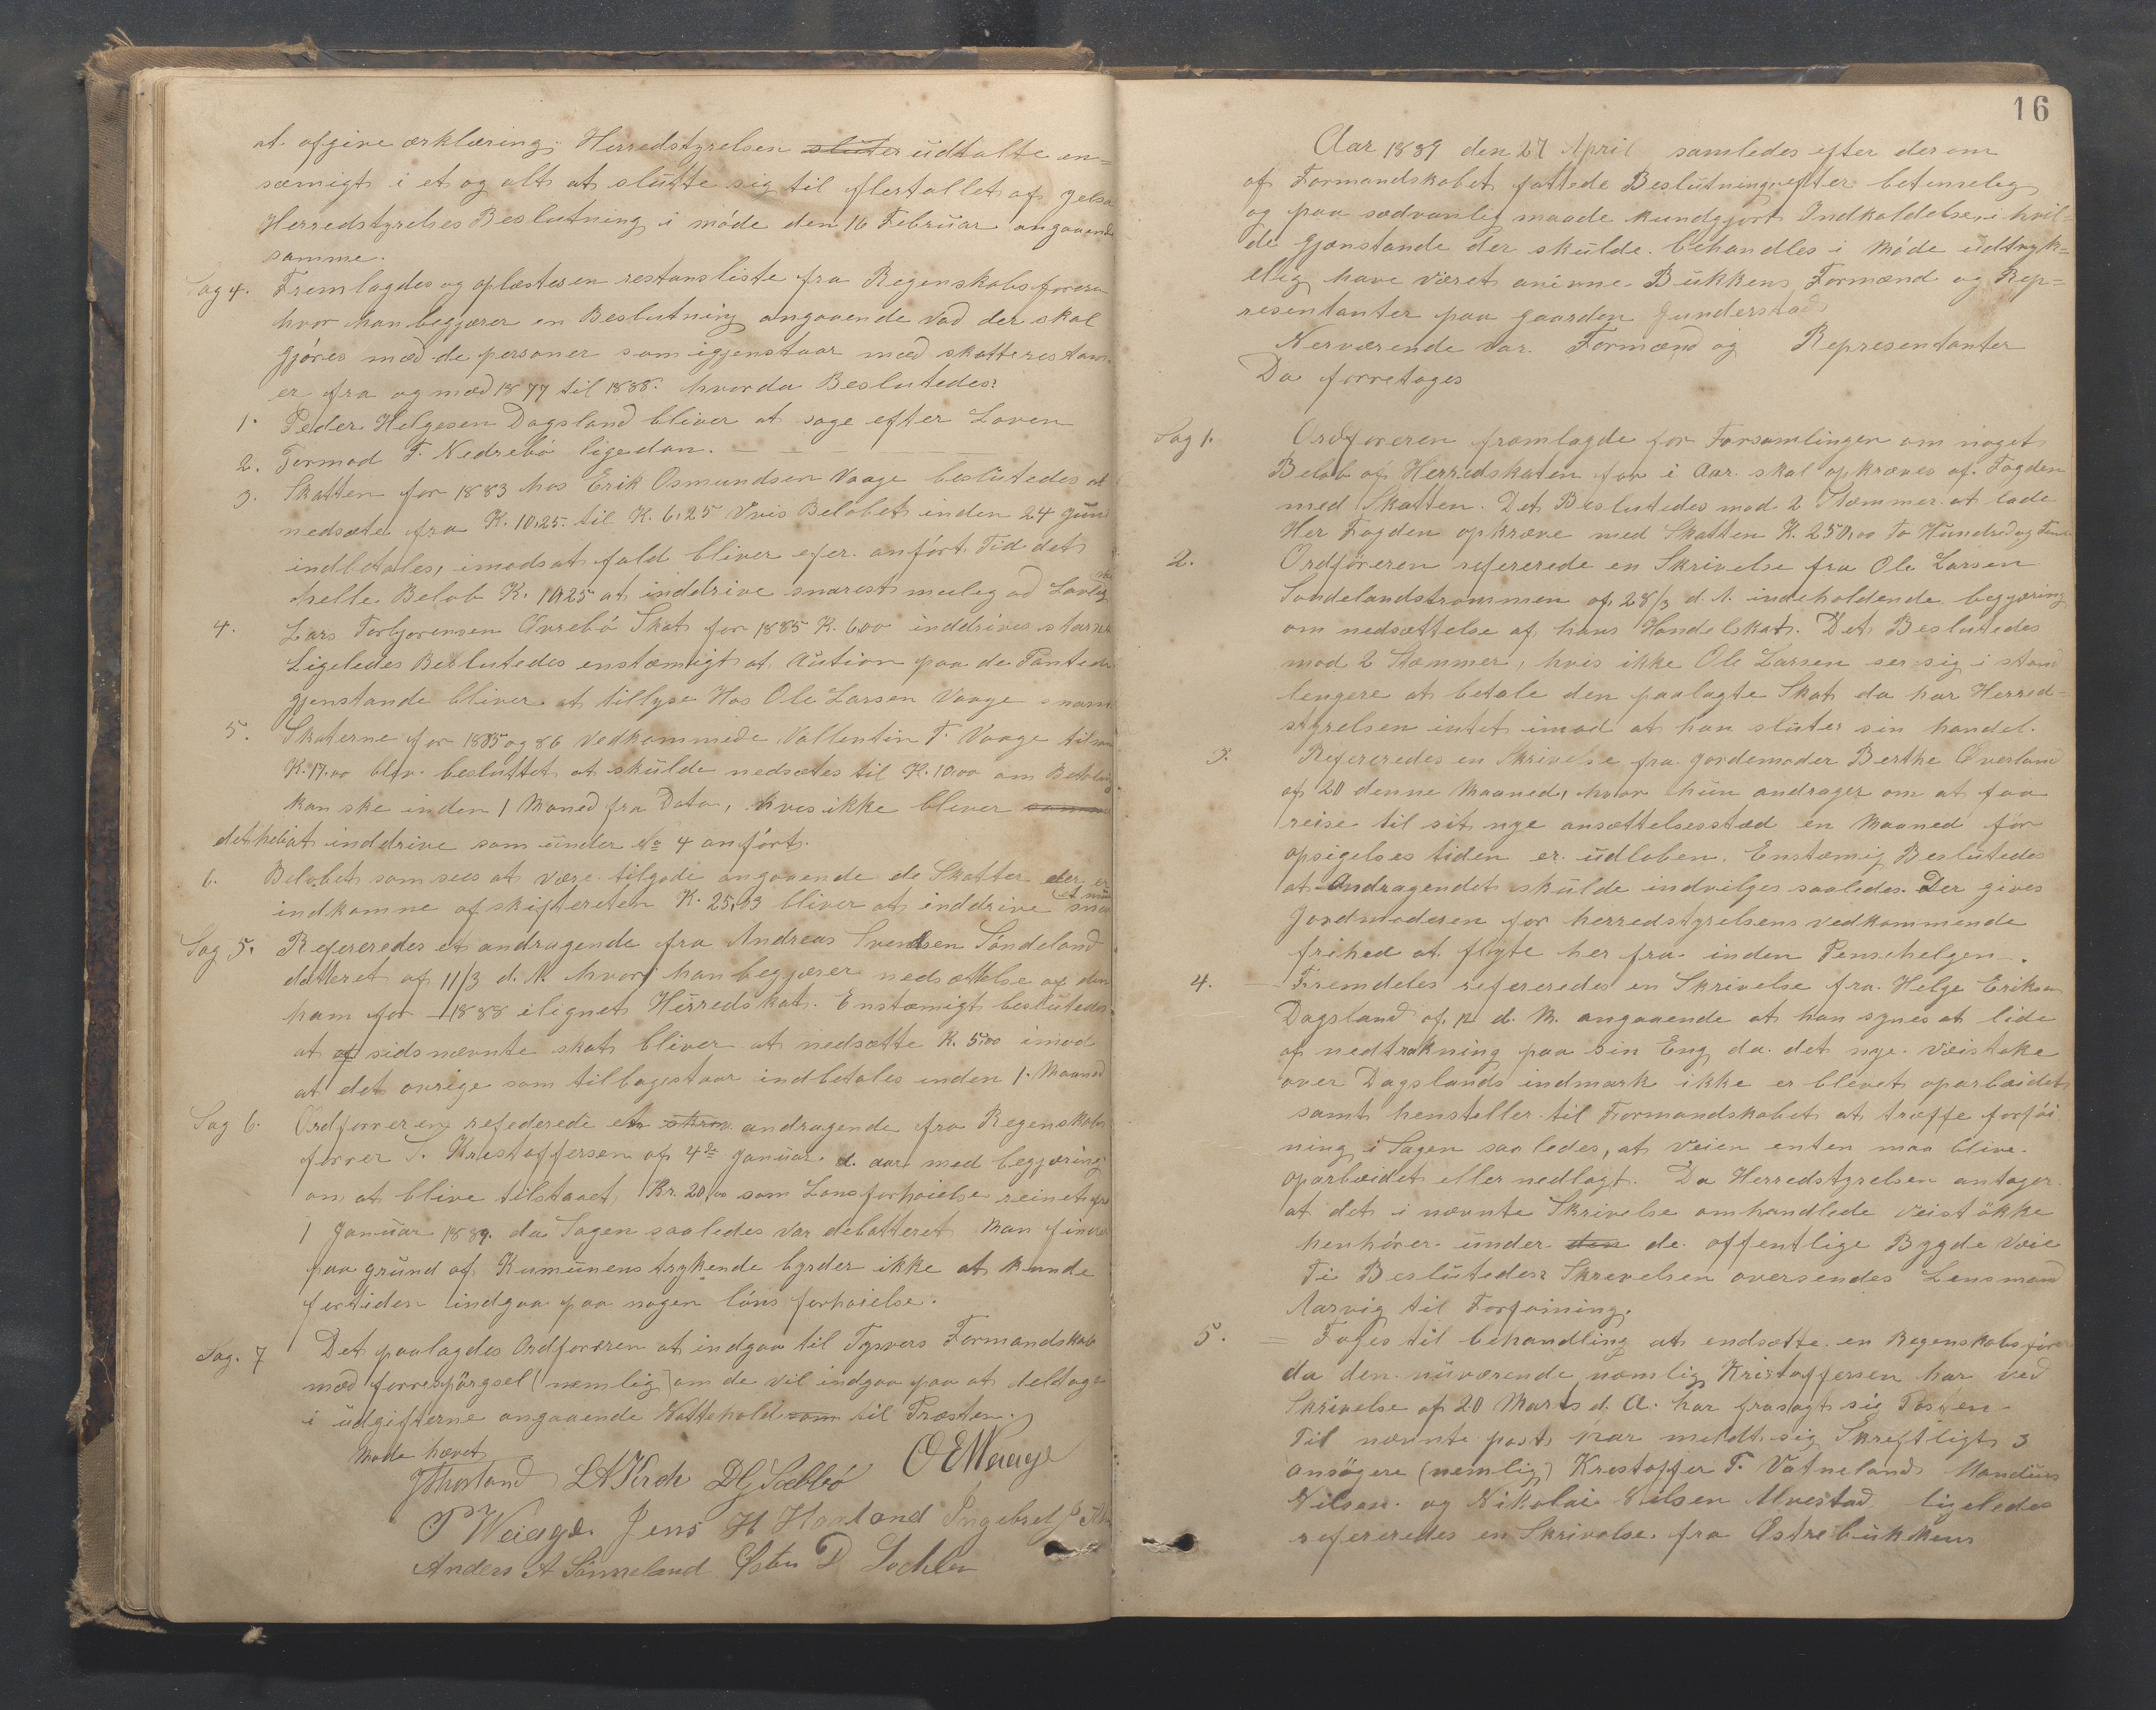 at afgive ærklæring; Herredstyrelsen sluter udtalte en=
sæmigt i et og alt at slutte sig til flertallet af Jelsa
Herredstyrelses Beslutning i möde den 16 Februar angaaende
samme.
Sag 4. Fremlagdes og oplæstes en restansliste fra Regenskabsforeren
hvor han begjærer en Beslutning angaaende vad der skal
gjöres mæd de personer som igjenstaar mæd skatterestans
er fra og mæd 1877 til 1888. hvorda Beslutedes:
1. Peder Helgesen Dagsland bliver at sage efter Loven
2. Tormod T. Nedrebö ligedan.
3. Skatten for 1883 hos Erik Osmundsen Vaage beslutedes at
nedsæte fra K. 10,25 til K. 6,25 Vvis Belobet inden 24 Juni
indbetales, imodsat fald bliver efer anfört Tid det
helle Belob K. 10,25 at inddrive snarest mueleg ad Lovlig
4. Lars Torbjorensen Øvrebö Skat for 1885 K. 6,00 inddrives
Ligeledes Beslutedes enstæmigt at Aution paa de Pantede
gjenstande bliver at tillyse Hos Ole Larsen Vaage snarest
5. Skaterne for 1885 og 86 vedkommede Vallentin T. Vaage
K. 17.00 blev besluttet at skulde nedsætes til K. 10,00 om Betaling
kan ske inden 1 Maned fra Dato, hvis ikke blever samme
det heligt inddrive som under No 4 anfört.
6. Belobet som sees at være tilgode angaaende de Skatter der er
indkomne af skiftereten K. 25,03 bliver at inddrive
Sag 5. Refereredes et andragende fra Andreas Svendsen Söndeland
datteret af 11/3 d. A. hvori han begjærer nedsættelse af den
ham for 1888 ilignet Herredskat. Enstæmigt beslutedes
at af sidsnævnte skat bliver at nedsætte K. 5,00 imod
at det øvrige som tilbagestaar indbetales inden 1. Maaned
Sag 6. Ordforreren refederede en skriv. andragende fra Regenskabs
forrer T. Kristoffersen af 4de Januar d. aar med begjæring
om at blive tilstaaet Kr. 20,00 som Lonsforhoielse reinet fra
1 Januar 1889. da Sagen saaledes var debatteret Man finder
paa grund af Kumunens trykende byrder ikke at kunde
fortiden indgaa paa nogen löns forhoielse.
Sag. 7 Det paalagdes Ordforreren at indgaa til Tysvers Formandskab
mæd forrespörgsel (nemlig) om de vil indgaa paa at deltage
i udgifterne angaaende Nattehold som til Præsten.
Möde hævet
LAKirch DGSæbbö OEWaage
P Weiage. Jens H Haaland Ingebret
Anders A Sönneland D
16
Aar 1889 den 27 April samledes efter derom
af Formandskabet fattede Beslutning efter betimeleg
og paa sædvanlig maade kundgjort Indkaldelse, i hvil=
de gjenstande der skulde behandles i Möde udtryk=
elig have været anivne Bukkens Formænd og Rep=
resentanter paa gaarden Gunderstad
Nerværende var Formænd og Representanter
Da forretoges
Sag 1. Ordforeren fræmlagde for Forsamlingen om noget
Belöb af Herredskaten for i Aar skal opkræves af Fogden
med Skatten. Det Beslutedes mod 2 Stæmmer at lade
Her Fogden opkræve med Skatten K. 250,00 To Hundred og Femti
2. Ordföreren refererede en Skrivelse fra Ole Larsen
Söndelandstrømmen af 28/3 d. A. indeholdende begjæring
om nedsættelse af hans Handelskat. Det Beslutedes
mod 2 Stæmmer, hvis ikke Ole Larsen ser sig i stand
lengere at betale den paalagte Skat da har Herred=
styrelsen intet imod at han sluter sin handel.
3. Refereredes en Skrivelse fra Jordemoder Berthe Øverland
af 20 denne Maaned, hvor hun andrager om at faa
reise til sit nye ansættelsesstæd en Maaned för
opsigelses tiden er udloben. Enstæmig Beslutedes
at Andragendet skulde indvilges saaledes. Der gives
Jordmoderen for herredstyrelsens vedkommende
frihed at flyte her fra inden Penschelgen.
4. Fremdeles refereredes en Skrivelse fra Helge Eriksen
Dagsland af 12 d. M. angaaende at han synes at lide
af nedtrakning paa sin Eng da det nye Veistøke
over Dagslands indmark ikke er blevet oparbæidet
samt hensteller til Formandskabet at træffe forföi
ning i Sagen saaledes, at Veien enten maa blive
oparbæidet eller nedlagt. Da Herredstyrelsen antager
at det i nævnte Skrivelse omhandlede Veistökke
henhörer under den de offentlige Bygde Veie
Ti Beslutedes: Skrevelsen oversendes Lensmand
Aarvig til Forfoining.
5. = Toges til behandling at endsætte en Regenskabsförer
da den nuværende nemlig Kristoffersen har ved
Skrivelse af 20 Marts d. A. har frasagt sig Posten
Til nævnte post har meldt sig Skreftligt 3
ansögere (nemlig) Krestoffer T. Vatneland Mandius
Nilsen og Nikolai Nilsen Alvestad ligeledes
refereredes en Skrivelse fra Østrebukkens